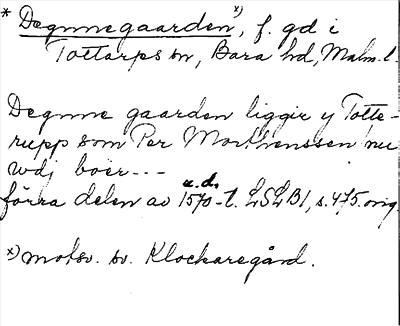 * Degnnegaarden x), f. gd i
Tottarps sn, Bara hd, Malm. l.
Degnne gaarden liggir y Totte-
rupp som Per Morthenssen nu
udj boer---
förra delen av u.d. 1570-t. LSLB1, s. 475. orig.
x) motsv. sv. Klockaregård.